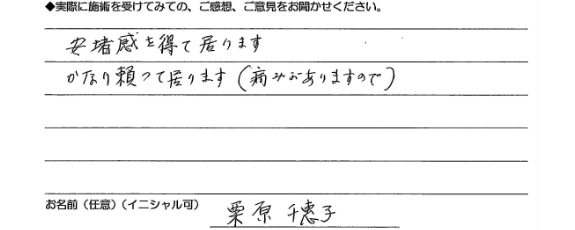 ◆実際に施術を受けてみての、ご感想、ご意見をお聞かせください。
安堵感を得て居ります
かなり頼って居ります(痛みがありますので)
お名前(任意)(イニシャル可) 栗原 千恵子